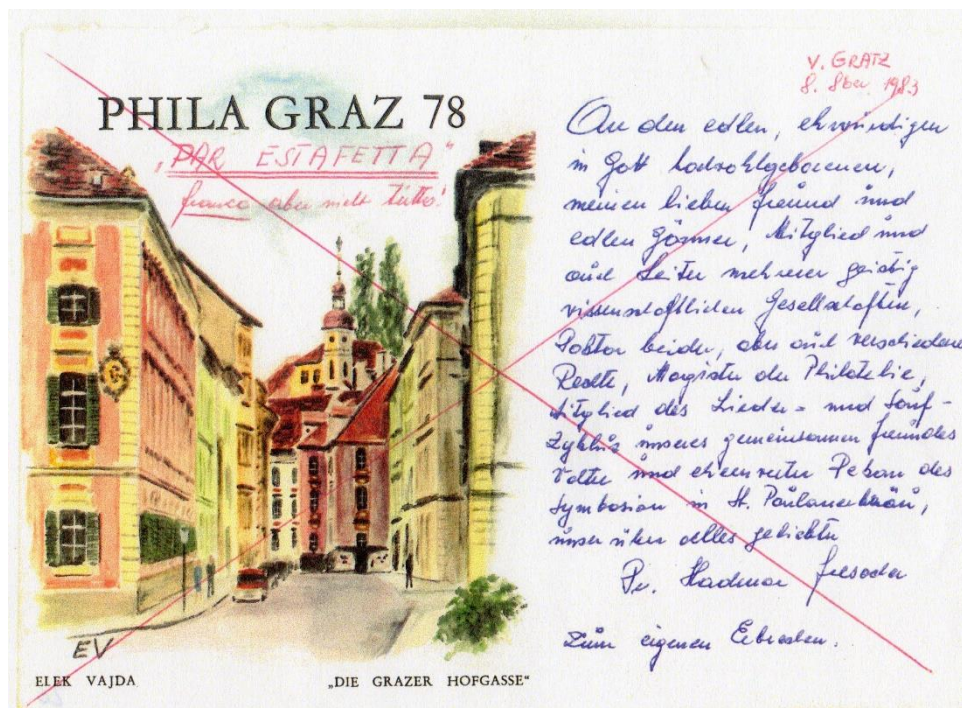 PHILA GRAZ 78
„PAR ESTAFETTA“
franco aber nicht
V. GRATZ
8. 8ber 1983
An den edlen, ehrwürdigen
in Gott
meinen lieben Freund und
edlen Gönner, Mitglied und
auch Leiter mehrerer geistig
wissenschaftlichen Gesellschaften,
Doktor beider, aber auch verschiedene
Rechte, Magister der Philatelie,
Mitglied des Lieder- und Sauf-
Zyklus unseres gemeinsamen Freundes
und Dekan des
Symposion in St.
unser über alles geliebter
Dr. Hadmar
Zum eigenen Erbrechen.
EV
ELEK VAJDA
„DIE GRAZER HOFGASSE“